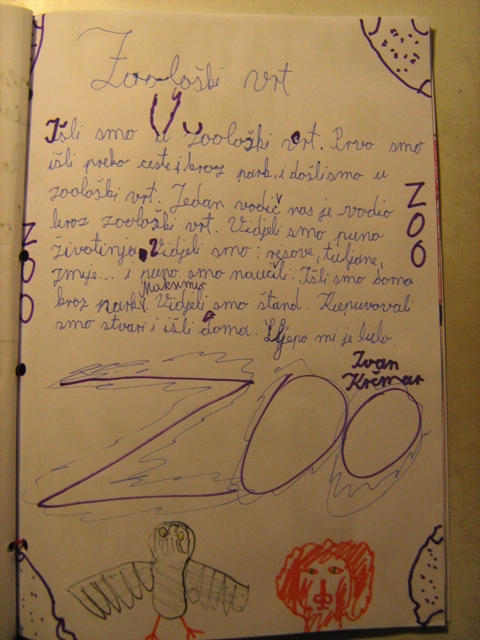 Zoološki vrt
Išli smo u zoološki vrt. Prvo smo
išli preko ceste i kroz park, i došli smo u
zoološki vrt. Jedan vodič nas je vodio
kroz zoološki vrt. Vidjeli smo puno
životinja. Vidjeli smo: risove, tuljane,
zmije... i puno smo naučili. Išli smo doma
kroz park Maksimir. Vidjeli smo štand. Kupuvovali
smo stvari i išli doma. Lijepo mi je bilo.
Ivan
Krčmar
ZOO
ZOO
ZOO